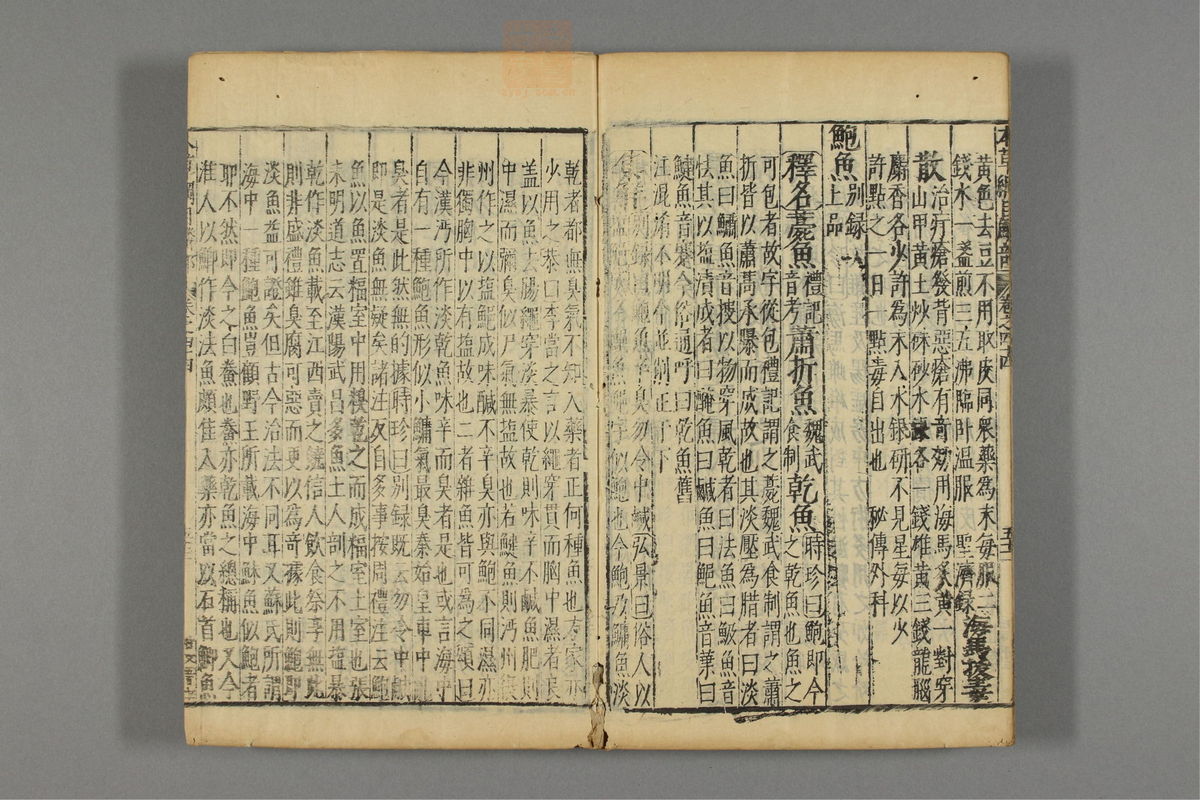 黃色去豆不用取皮同衆藥為末每服二
錢水一盞煎三五沸臨卧温服聖濟錄海馬拔毒
散治疔瘡發背惡瘡有竒効用海馬炙黃一對穿
山甲黃土炒硃砂水銀各一錢雄黃三錢龍腦
麝香各少許為末入水銀研不見星每以少
許點之一日一點毒自出也秘傳外科
鮑魚別錄上品
釋名薧魚禮記音考蕭折魚魏武食制乾魚時珍曰鮑即今
之乾魚也魚之
可包者故字從包禮記謂之薧魏武食制謂之蕭
折皆以蕭蒿承曝而成故也其淡壓為腊者曰淡
魚曰鱐魚音搜以物穿風乾者曰法魚曰鮁魚音
怯其以塩漬成者曰醃魚曰鹹魚曰鮿魚音葉曰
鱁魚音蹇今俗通呼曰乾魚舊
註混淆不明今並削正于下
別錄曰鮑魚辛臭勿令中鹹弘景曰俗人以
似鮑也今鮑乃鱅魚淡
乾者都無臭氣不知入藥者正何種魚也方家亦
少用之恭曰李當之言以繩穿貫而胸中濕者良
蓋以魚去腸繩穿暴使乾則味辛不鹹魚肥則
中濕而彌臭似尸氣無塩故也若鱁魚則沔州
州作之以塩鮑成味鹹不辛臭亦與鮑不同濕亦
非獨胸中以有塩故也二者雜魚皆可為之頌曰
今漢沔所作淡乾魚味辛而臭者是也或言海中
自有一種鮑魚形似小鱅氣最臭秦始皇車中
臭者是此然無的據時珍曰別録既云勿令中鹹
即是淡魚無疑矣諸注反自多事按周禮注云鮑
魚以魚置糗室中用糗乾之而成糗室土室也張
耒明道志云漢陽武昌多魚土人剖之不用塩暴
乾作淡魚載至江西賣之饒信人飲食祭享無此
則非盛禮雖臭腐可惡而更以為竒據此則鮑即
淡魚益可證矣但古今治法不同耳又蘇氏所謂
海中一種鮑魚豈顧野王所載海中䱅魚似鮑者
耶不然即今之白鯗也鯗亦乾魚之總稱也又今
淮人以鯽作淡法魚頗佳入藥亦當以石首鯽魚